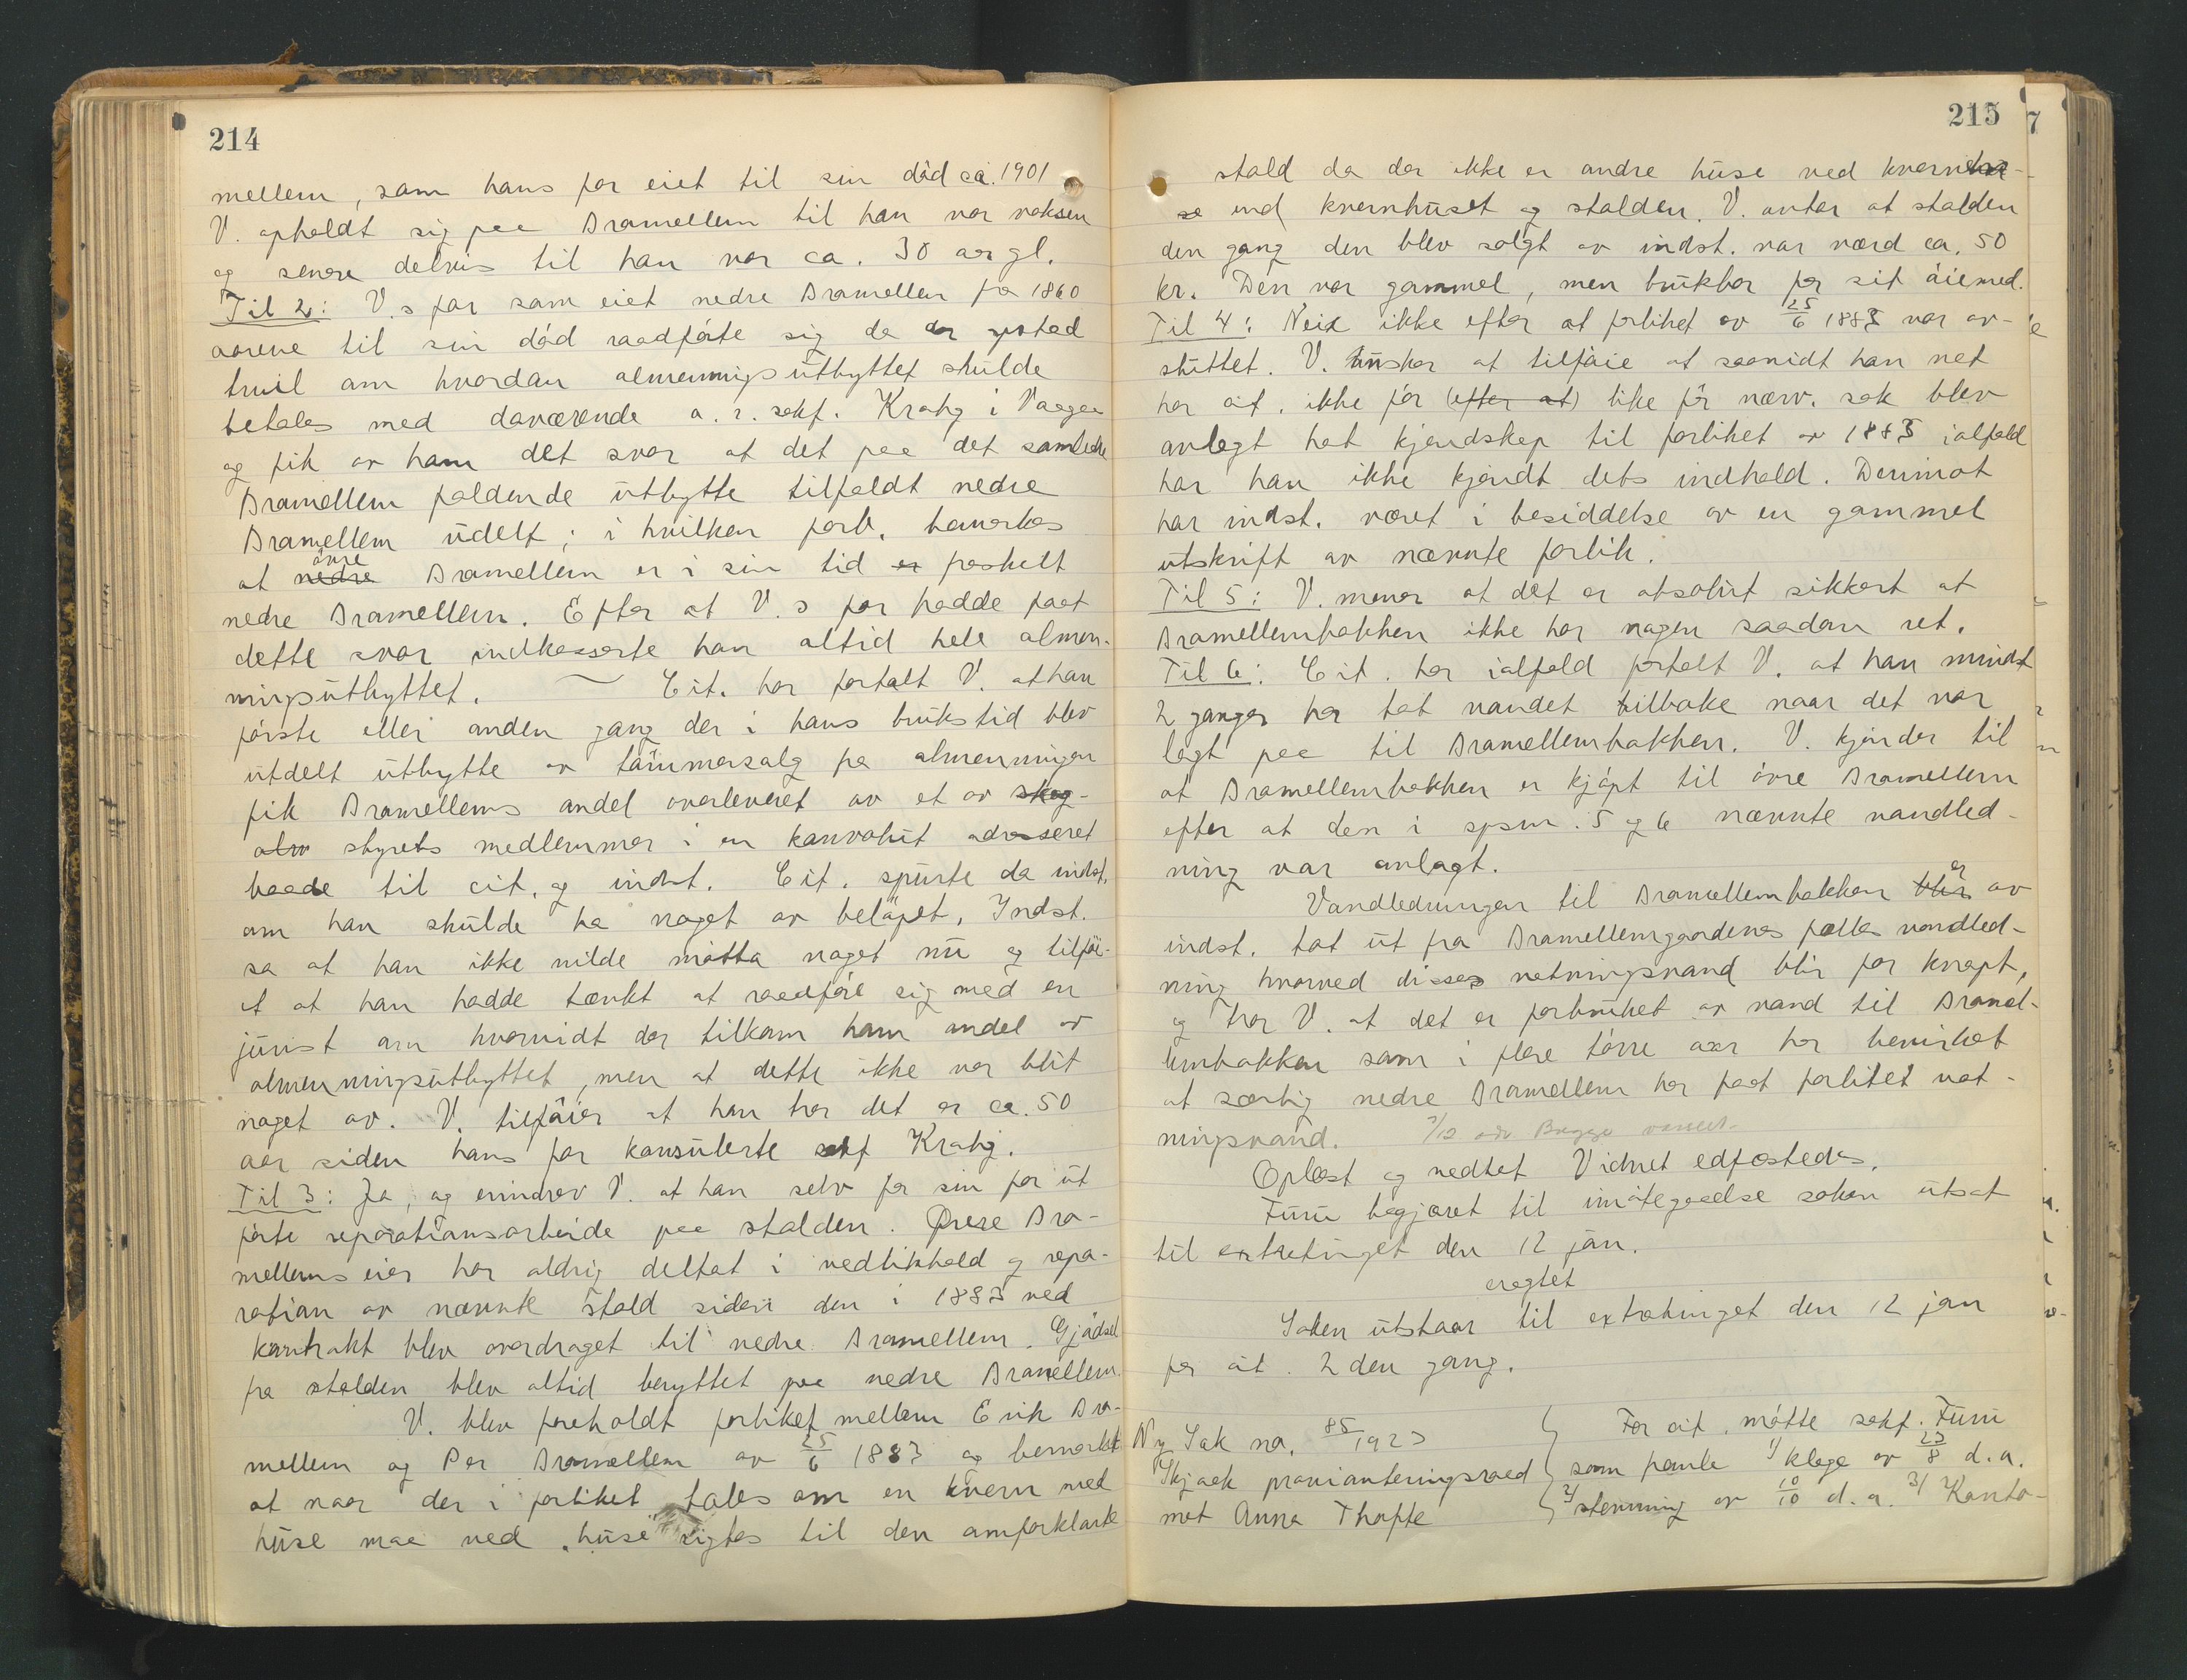 214
mellem, som hans far eiet til sin död ca. 1901
V. opholdt sig paa Bramellem til han var voksen
og senere delvis til han var ca. 30 aar gl.
Til 2: V.s far som eiet nedre Bramellem fra 1860
aarene til sin död raadförte sig da der opstod
tvil om hvordan almenningsutbyttet skulde
betales med daværende o. r. sakf. Krabg i Vaage
og fik av ham det svar at det paa det samlede
Bramellem faldende utbytte tilfaldt nedre
Bramellem udelt; i hvilken forb. bemerkes
at nedre övre Bramellem er i sin tid er fraskilt
nedre Bramellem. Efter at V.s far hadde faat
dette svar indkasserte han altid hele almen-
ningsutbyttet. Cit. har fortalt V. at han
förste eller anden gang der i hans brukstid blev
utdelt utbytte av tömmersalg fra almenningen
fik Bramellems andel overleveret av et av skog-
alm styrets medlemmer i en konvolut adresseret
baade til cit. og indst. Cit. spurte da indst.
om han skulde ha noget av belöpet. Indst.
sa at han ikke vilde motta noget nu og tilföi-
et at han hadde tænkt at raadföre sig med en
jurist om hvorvidt der tilkom ham andel av
almenningsutbyttet, men at dette ikke var blit
noget av. V. tilföier at han tror det er ca. 50
aar siden hans far konsulerte sakf Krabg.
Til 3: Ja, og erindrer V. at han selv for sin far ut
förte reparationsarbeide paa stalden. Övre Bra-
mellems eier har aldrig deltat i vedlikhold og repa-
ration av nævnte stald siden den i 1883 ved
kontrakt blev overdraget til nedre Bramellem. Gjödsel
fra stalden blev altid benyttet paa nedre Bramellem.
V. blev foreholdt forliket mellem Erik Bra-
mellem og Per Bramellem av 25/6 1883 og bemerket
at naar der i forliket tales om en kvern med
huse maa ved "huse" sigtes til den omforklarte
215
stald da der ikke er andre huse ved kvernhu-
se end kvernhuset og stalden. V. antar at stalden
den gang den blev solgt av indst. var værd ca. 50
kr. Den var gammel, men brukbar for sit öiemed.
Til 4: Neix ikke efter at forliket av 25/6 1883 var av-
sluttet. V. önsker at tilföie at saavidt han vet
har cit. ikke för (efter at) like för nærv. sak blev
anlagt hat kjendskap til forliket av 1883 ialfald
har han ikke kjendt dets indhold. Derimot
har indst. været i besiddelse av en gammel
utskrift av nævnte forlik.
Til 5: V. mener at det er absolut sikkert at
Bramellembakken ikke har nogen saadan ret.
Til 6: Cit. har ialfald fortalt V. at han mindst
2 ganger har tat vandet tilbake naar det var
lagt paa til Bramellembakken. V. kjender til
at Bramellembakken er kjöpt til övre Bramellem
efter at den i spsm. 5 og 6 nævnte vandled-
ning var anlagt.
Vandledningen til Bramellembakken blir er av
indst. tat ut fra Bramellemgaardenes fælles vandled-
ning hvorved disses vatningsvand blir for knapt,
og tror V. at det er forbruket av vand til Bramel-
lembakken som i flere törre aar har bevirket
at særlig nedre Bramellem har faat forlitet vat-
ningsvand.
Oplæst og vedtat Vidnet edfæstedes.
Furu begjæret til imötegaaelse saken utsat
til extratinget den 12 jan.
eragtet
Saken utstaar til extratinget den 12 jan
for cit. 2 den gang.
Ny Sak no. 85/1923
Skjaak provianteringsraad
mot Anna Thofte
For cit. mötte sakf. Furu
som femla 1/ klage av 23/8 d.a.
2/ stevning av 10/10 d.a. 3/ Konto-